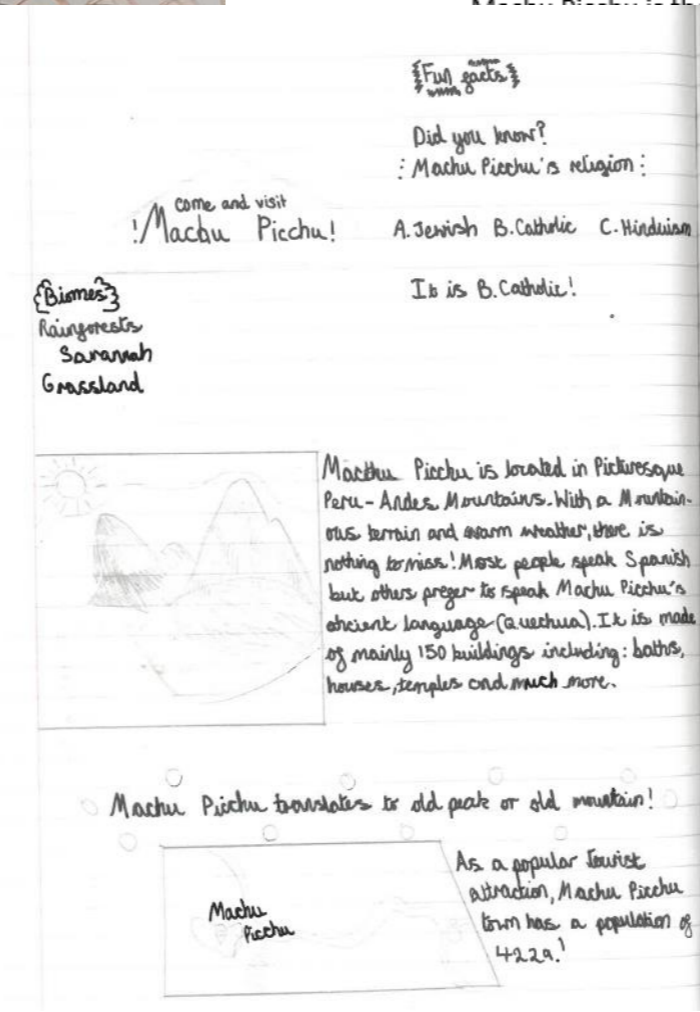 {Fun facts}
Did you know?
: Machu Picchu's religion :
A. Jewish B. Catholic C. Hinduism
It is B. Catholic!
come and visit
! Machu Picchu!
{Biomes}
Rainforests
Savannah
Grassland
Macchu Picchu is located in Picturesque
Peru - Andes Mountains. With a Mountain-
ous terrain and warm weather, there is
nothing to miss! Most people speak Spanish
but others prefer to speak Machu Picchu's
ancient language (Quechua). It is made
of mainly 150 buildings including: baths,
houses, temples and much more.
Machu Picchu translates to old peak or old mountain!
Machu
Picchu
As a popular Tourist
attraction, Machu Picchu
town has a population of
4229!